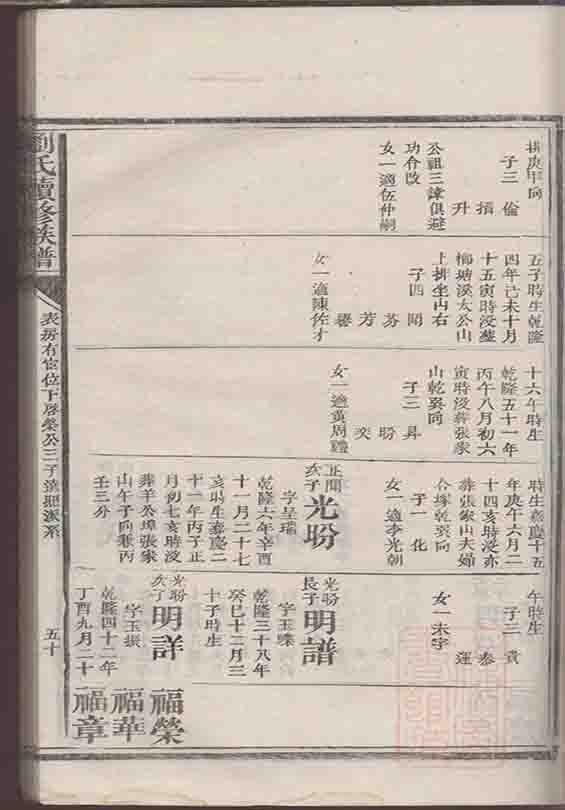 排庚甲向
子三 倫
措
升
公祖三諱俱避
功名改
女一適伍仲嗣
五子時生乾隆
四年己未十月
十五寅時没葬
楊塘溪太公山
上排坐山右
子四 聞
芬
芳
馨
女一適陳佐才
十六午時生
乾隆五十一年
丙午八月初六
寅時没葬張家
山乾巽向
子三 昇
盼
奕
女一適黃周禮
時生嘉慶十五
年庚午六月二
十四亥時没亦
葬張家山夫婦
合塚乾巽向
子一 化
女一適李光朝
正聞
次子 光盼
字呈瑞
乾隆六年辛酉
十一月二十七
亥時生嘉慶二
十一年丙子正
月初七亥時没
葬羊公埠張家
山午子向兼丙
壬三分
午時生
子三 貴
泰
運
女一未字
光盼
長子 明譜
字玉蝶
乾隆三十八年
癸巳十二月三
十子時生
光盼
次子 明詳
字玉振
乾隆四十二年
丁酉九月二十
福榮
福華
福章
劉氏續修族譜
表房有宦位下啓榮公三子葉照派系
五十